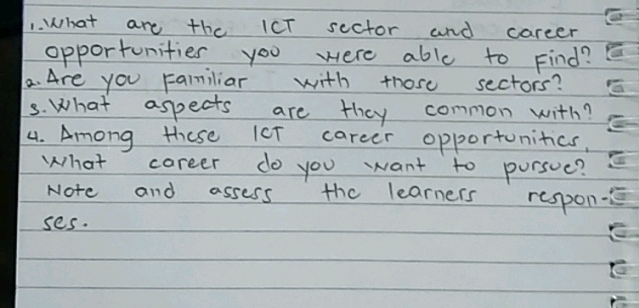 1. What are the ICT sector and career
opportunities you were able to find?
2. Are you familiar with those sectors?
3. What aspects are they common with?
4. Among these ICT career opportunities,
what career do you want to pursue?
Note and assess the learners respon-
ses.